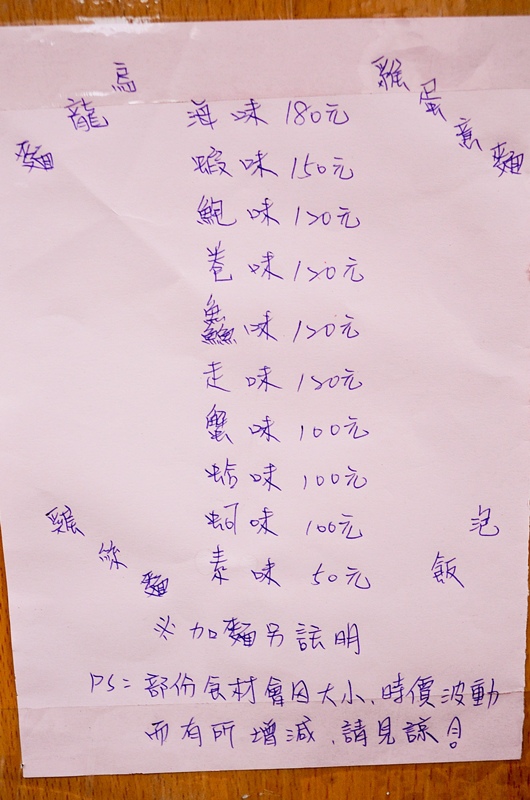 烏龍麵
雞蛋意麵
海味 180元
蝦味 150元
鮑味 120元
卷味 120元
鱻味 120元
走味 120元
蟹味 100元
蛤味 100元
蚵味 100元
素味 50元
雞絲麵
泡飯
※加麵另註明
PS:部份食材會因大小、時價波動
而有所增減,請見諒!